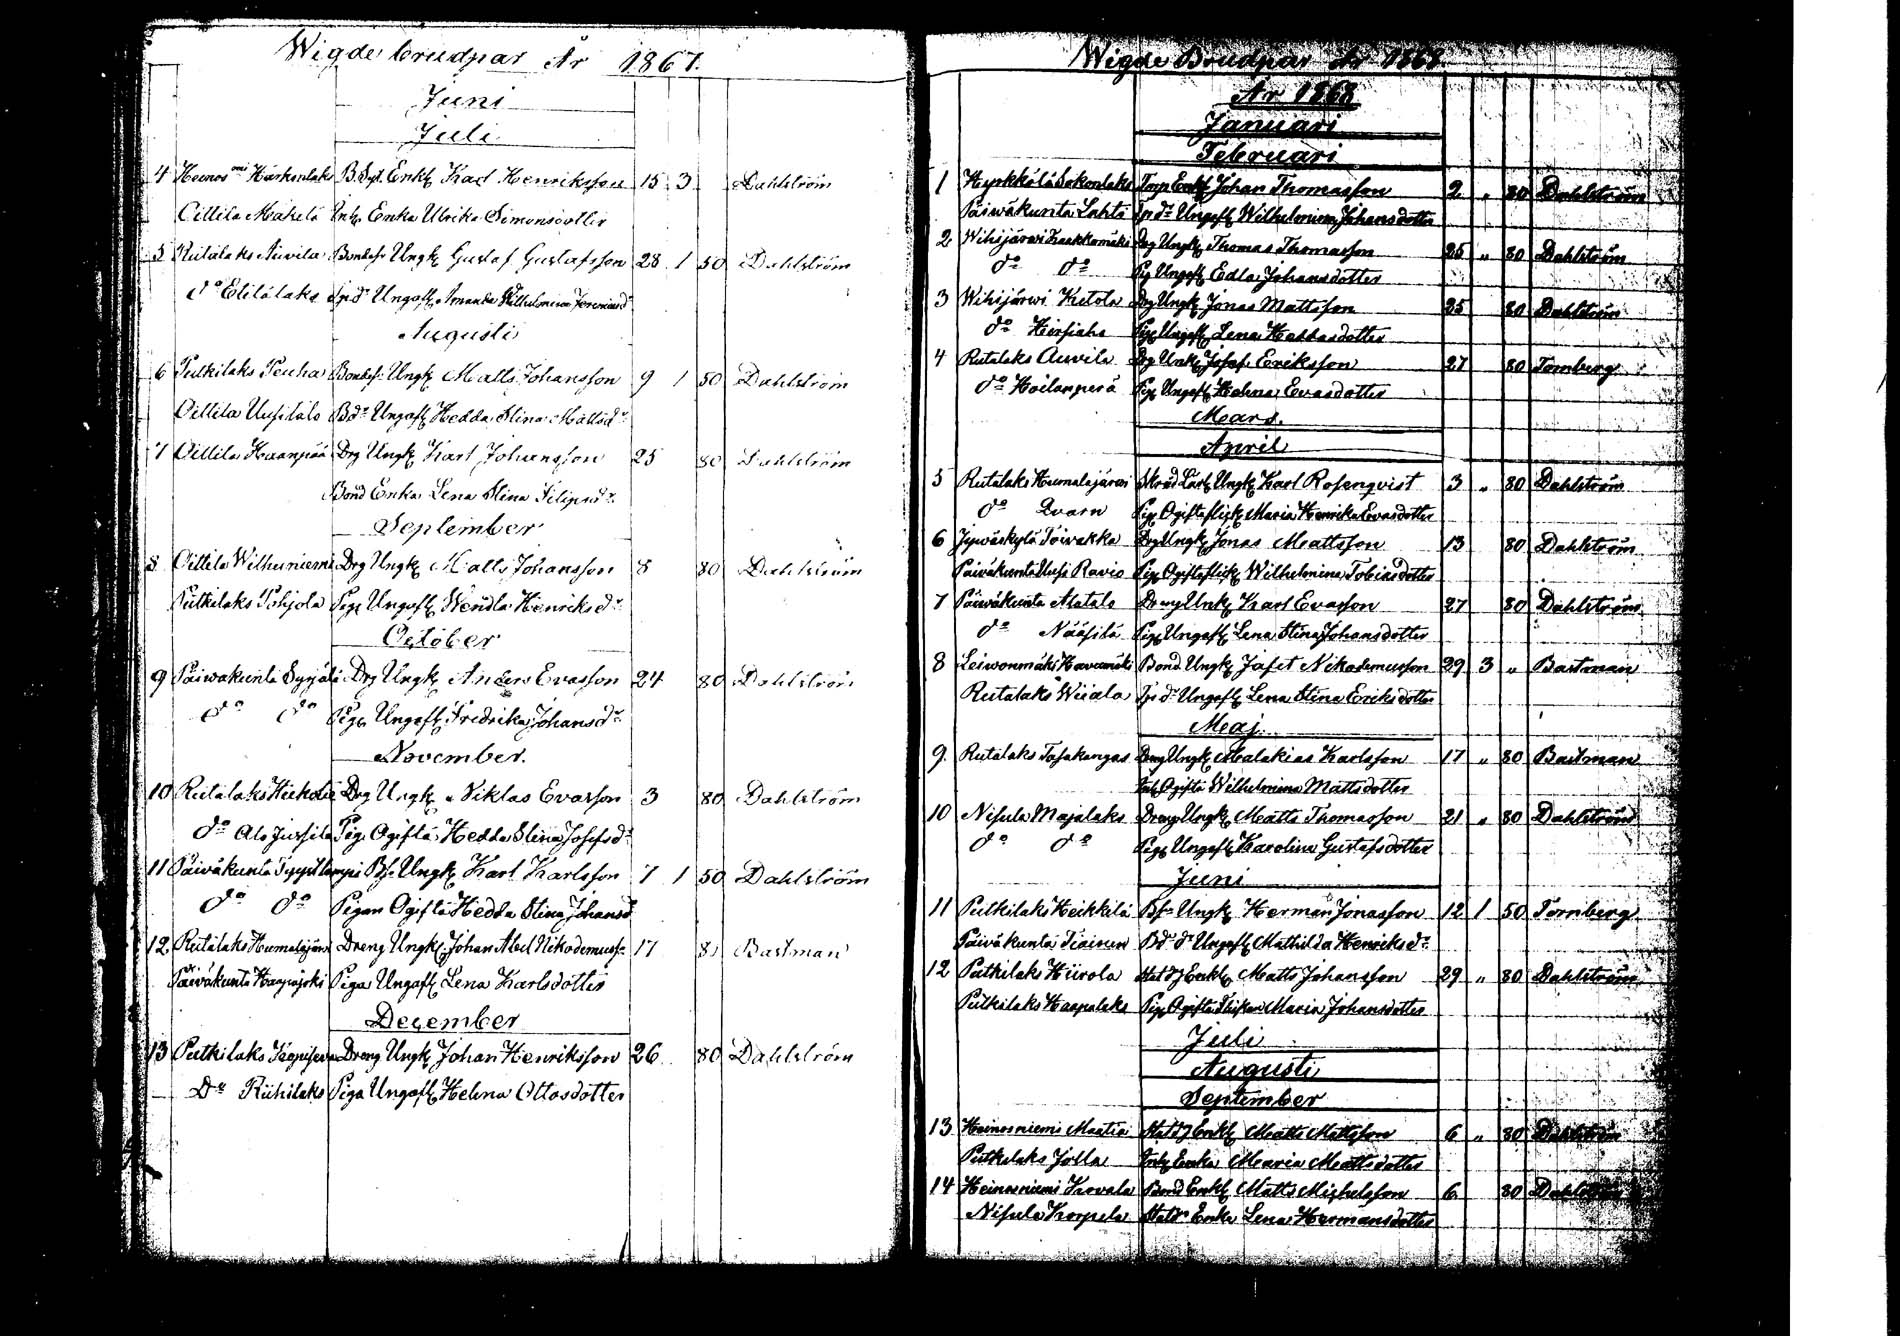 Wigde brudpar År 1867.
Juni
Juli
4 Heinos mi Karl Henriksson 15 3 Dahlström
Oittila Mäkelä Enka Ulrika Simonsdotter
5 Rutalaks Auvila Bondes. Ungk Gustaf Gustafsson 28 1 50 Dahlström
do Eliélälaks Ungofl Amanda Wilhelmina
Augusti
6 Putkilaks Peuha Bondes. Ungk Matts Johansson 9 1 50 Dahlström
Oittila Uusitalo Bdr Ungofl Hedda Stina Mattsdr
7 Oittila Haanpää Drg Ungk Karl Johansson 25 80 Dahlström
Bond Enka Lena Stina Filipsdr
September
8 Oittila Wilhuniemi Drg Ungk Matts Johansson 8 80 Dahlström
Putkilaks Pohjola Pig Ungofl Wendla Henriksdr
October
9 Päiwäkunta Syrjälä Drg Ungk Anders Evasson 24 80 Dahlström
do do Pig Ungofl Fredrika Johansdr
November.
10 Rutalaks Drg Ungk Niklas Evasson 3 80 Dahlström
do Ala Jussila Pig Ogifta Hedda Stina Josefsdr
11 Päiväkunta Bs. Ungk Karl Karlsson 7 1 50 Dahlström
do do Pigan Ogifta Hedda Stina Johansd
12 Rutalaks Humalajärvi Dreng Ungk Johan Abel Nikodemuss. 17 80 Bastman
Päiväkunta Haapajoki Piga Ungofl Lena Karlsdotter
December
13 Putkilaks Dreng Ungk Johan Henriksson 26 80 Dahlström
Do Riihilaks Piga Ungofl Helena Ottosdotter
Wigde Brudpar År 1868
År 1868
Januari
Februari
1 Hyrkkölä Sakonlaks Torp Enkl Johan Thomasson 2 „ 80 Dahlström
Päiwäkunta Lahti Tp dr Ungofl Wilhelmina Johansdotter
2 Wihijärwi Drg Ungk Thomas Thomasson 25 „ 80 Dahlström
do do Pig Ungofl Edla Johansdotter
3 Wihijärwi Ketola Drg Ungk Jonas Mattsson 25 80 Dahlström
do Pig Ungofl Lena
4 Rutalaks Auvila Drg Unk Josef Eriksson 27 80 Tornberg
do Hoilanperä Pig Ungofl Helena Evasdotter
Mars.
April
5 Rutalaks Humalajärvi Skräd Lärl Ungk Karl Rosenqvist 3 „ 80 Dahlström
do Qvarn Pig Ogifta flick Maria Henrika Evasdotter
6 Jywäskylä Toivakka Drg Ungk Jonas Mattsson 13 80 Dahlström
Päiväkunta Uusi Ravio Pig Ogifta flick Wilhelmina Tobiasdotter
7 Päiwäkunta Alatalo Dreng Unk Karl Evasson 27 80 Dahlström
do Pig Ungofl Lena Stina Johansdotter
8 Leiwonmäki Bond Ungk Jafet Nikodemusson 29 3 „ Bastman
Rutalaks Wiiala Tp dr Ungofl Lena Stina Eriksdotter
Maj.
9. Rutalaks Tasakangas Dreng Ungk Malakias Karlsson 17 „ 80 Bastman
Inh Ogifta Wilhelmina Mattsdotter
10 Nisula Majalaks Dreng Ungk Matts Thomasson 21 „ 80 Dahlström
do do Pig Ungofl Karolina Gustafsdotter
Juni
11 Putkilaks Heikkilä Bs. Ungk Herman Jonasson 12 1 50 Tornberg
Päiväkunta Tiainen Bd dr Ungofl Mathilda Henriksdr
12 Putkilaks Hiirola Enkl Matts Johansson 29 „ 80 Dahlström
Putkilaks Haapalaks Pig Ogifta Flickan Maria Johansdotter
Juli
Augusti
September
13 Heinosniemi Maatia Enkl Matts Mattsson 6 „ 80 Dahlström
Putkilaks Jolla Inh Enka Maria Mattsdotter
14 Heinosniemi Kovala Bond Enkl Matts Michelsson 6 80 Dahlström
Nisula Korpela Enka Lena Hermansdotter